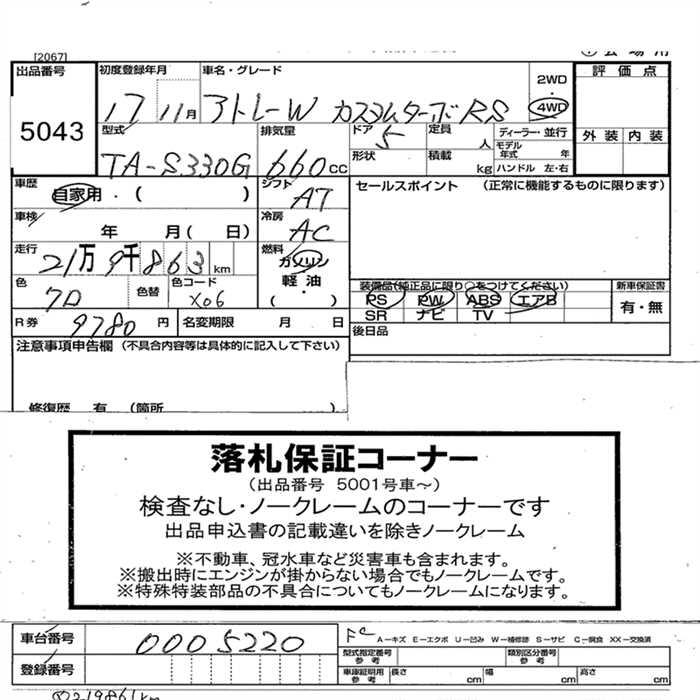 [2067]
出品番号 初度登録年月 車名・グレード 2WD 評価点
5043 17 11月 アトレーW カスタムターボRS 4WD
型式 排気量 ドア 5 定員 人 ディーラー・並行 外装 内装
TA-S330G 660cc 形状 積載 kg モデル年式 年 ハンドル 左・右
車歴 自家用・( ) シフト AT セールスポイント (正常に機能するものに限ります)
車検 年 月(日) 冷房 AC
走行 21万9千863km 燃料 ガソリン
色 色替 色コード X06 軽油・( ) 装備品(純正品に限り○をつけてください) 新車保証書
PS PW ABS エアB 有・無
SR ナビ TV
R券 9780円 名変期限 月 日 後日品
注意事項申告欄 (不具合内容等は具体的に記入して下さい)
修復歴 有 (箇所
落札保証コーナー
(出品番号 5001号車~)
検査なし・ノークレームのコーナーです
出品申込書の記載違いを除きノークレーム
※不動車、冠水車など災害車も含まれます。
※搬出時にエンジンが掛からない場合でもノークレームです。
※特殊特装部品の不具合についてもノークレームになります。
車台番号 0005220 A-キズ E-エクボ U-凹み W-補修跡 S-サビ C-腐食 XX-交換済
型式指定番号 参考 類別区分番号 参考
登録番号 車庫証明用 参考 長さ cm 幅 cm 高さ cm